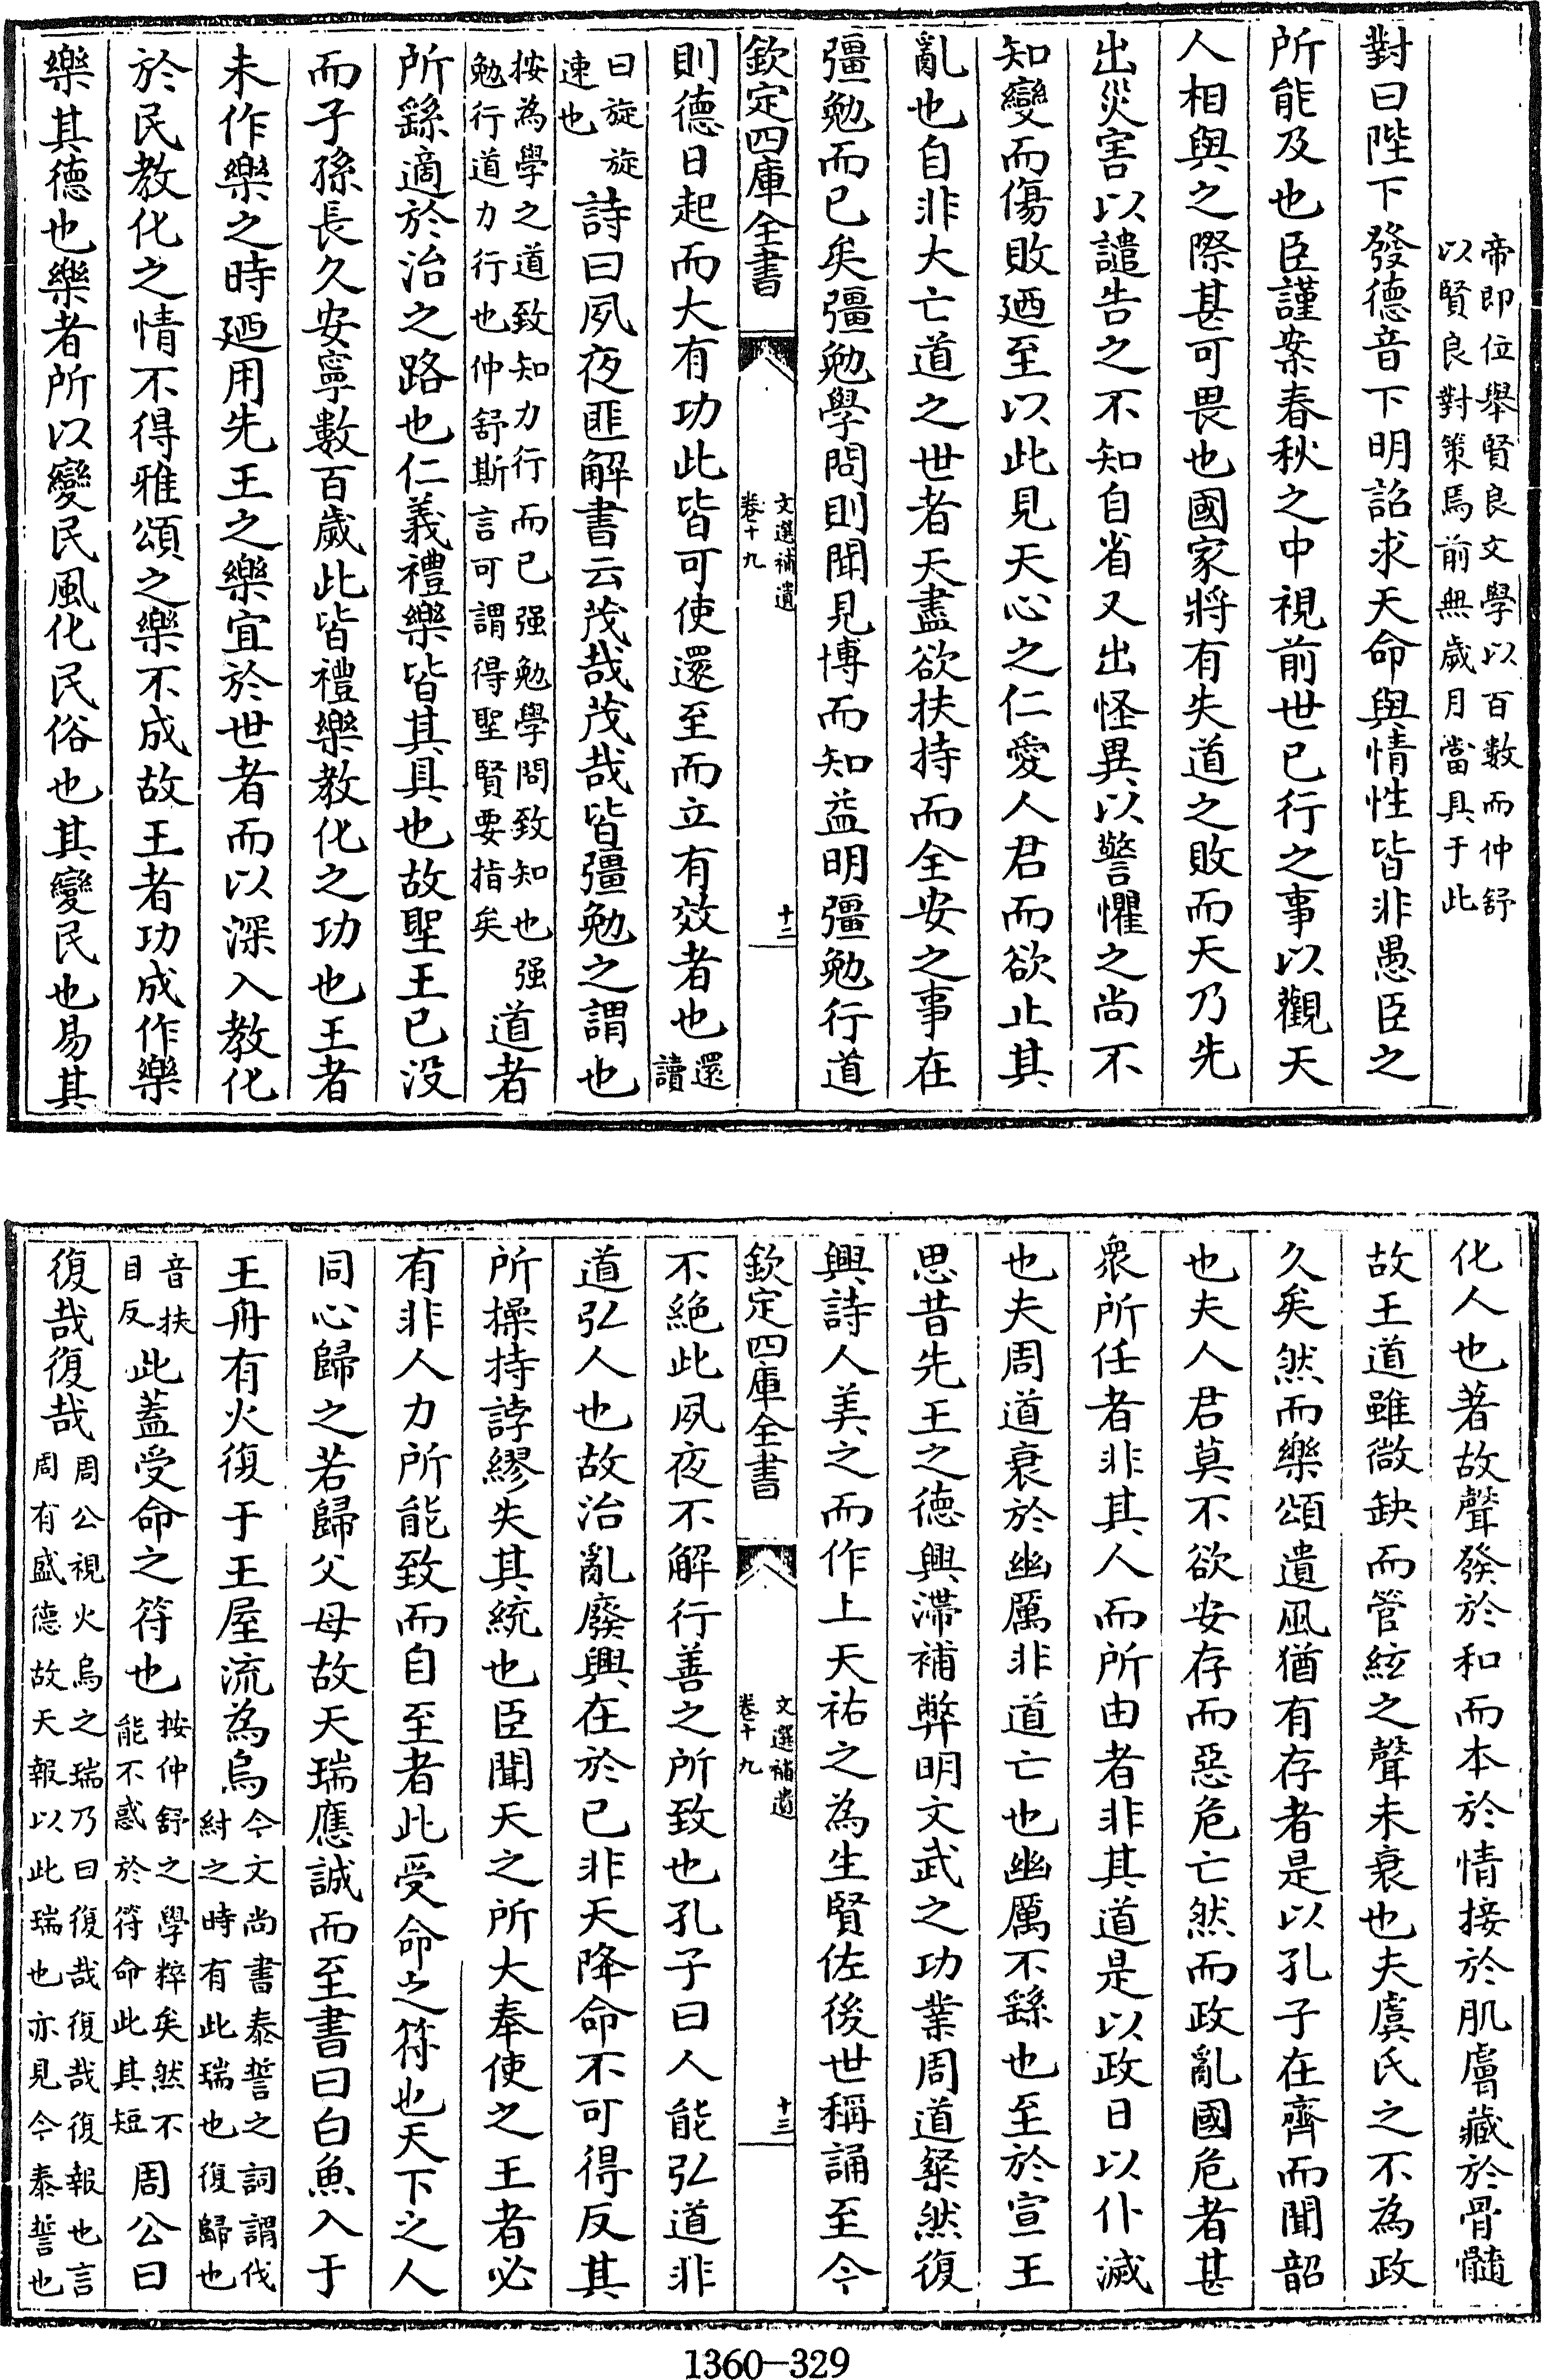 帝即位舉賢良文學以百數而仲舒
以賢良對策焉前無歲月當具于此
對曰陛下發德音下明詔求天命與情性皆非愚臣之
所能及也臣謹案春秋之中視前世已行之事以觀天
人相與之際甚可畏也國家將有失道之敗而天乃先
出災害以譴告之不知自省又出怪異以警懼之尚不
知變而傷敗廼至以此見天心之仁愛人君而欲止其
亂也自非大亡道之世者天盡欲扶持而全安之事在
彊勉而已矣彊勉學問則聞見博而知益明彊勉行道
欽定四庫全書
文選補遺
卷十九
十二
則德日起而大有功此皆可使還至而立有效者也還讀
曰旋旋速也詩曰夙夜匪解書云茂哉茂哉皆彊勉之謂也
按為學之道致知力行而已强勉學問致知也强勉行道力行也仲舒斯言可謂得聖賢要指矣道者
所繇適於治之路也仁義禮樂皆其具也故聖王已沒
而子孫長久安寧數百歲此皆禮樂教化之功也王者
未作樂之時廼用先王之樂宜於世者而以深入教化
於民教化之情不得雅頌之樂不成故王者功成作樂
樂其德也樂者所以變民風化民俗也其變民也易其
化人也著故聲發於和而本於情接於肌膚藏於骨髓
故王道雖微缺而管絃之聲未衰也夫虞氏之不為政
久矣然而樂頌遺風猶有存者是以孔子在齊而聞韶
也夫人君莫不欲安存而惡危亡然而政亂國危者甚
衆所任者非其人而所由者非其道是以政日以仆滅
也夫周道衰於幽厲非道亡也幽厲不繇也至於宣王
思昔先王之德興滯補弊明文武之功業周道粲然復
興詩人美之而作上天祐之為生賢佐後世稱誦至今
欽定四庫全書
文選補遺
卷十九
十三
不絶此夙夜不解行善之所致也孔子曰人能弘道非
道弘人也故治亂廢興在於已非天降命不可得反其
所操持誖繆失其統也臣聞天之所大奉使之王者必
有非人力所能致而自至者此受命之符也天下之人
同心歸之若歸父母故天瑞應誠而至書曰白魚入于
王舟有火復于王屋流為烏今文尚書泰誓之詞謂伐紂之時有此瑞也復歸也
音扶目反此蓋受命之符也按仲舒之學粹矣然不能不惑於符命此其短周公曰
復哉復哉周公視火烏之瑞乃曰復哉復哉復報也言周有盛德故天報以此瑞也亦見今泰誓也
1360-329